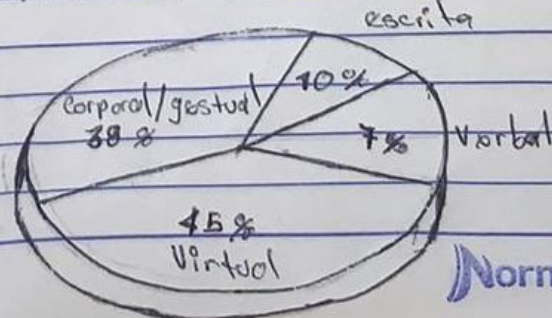 escrita
10%
Corporal/gestual
38 %
7%
Verbal
45 %
Virtual
Norm